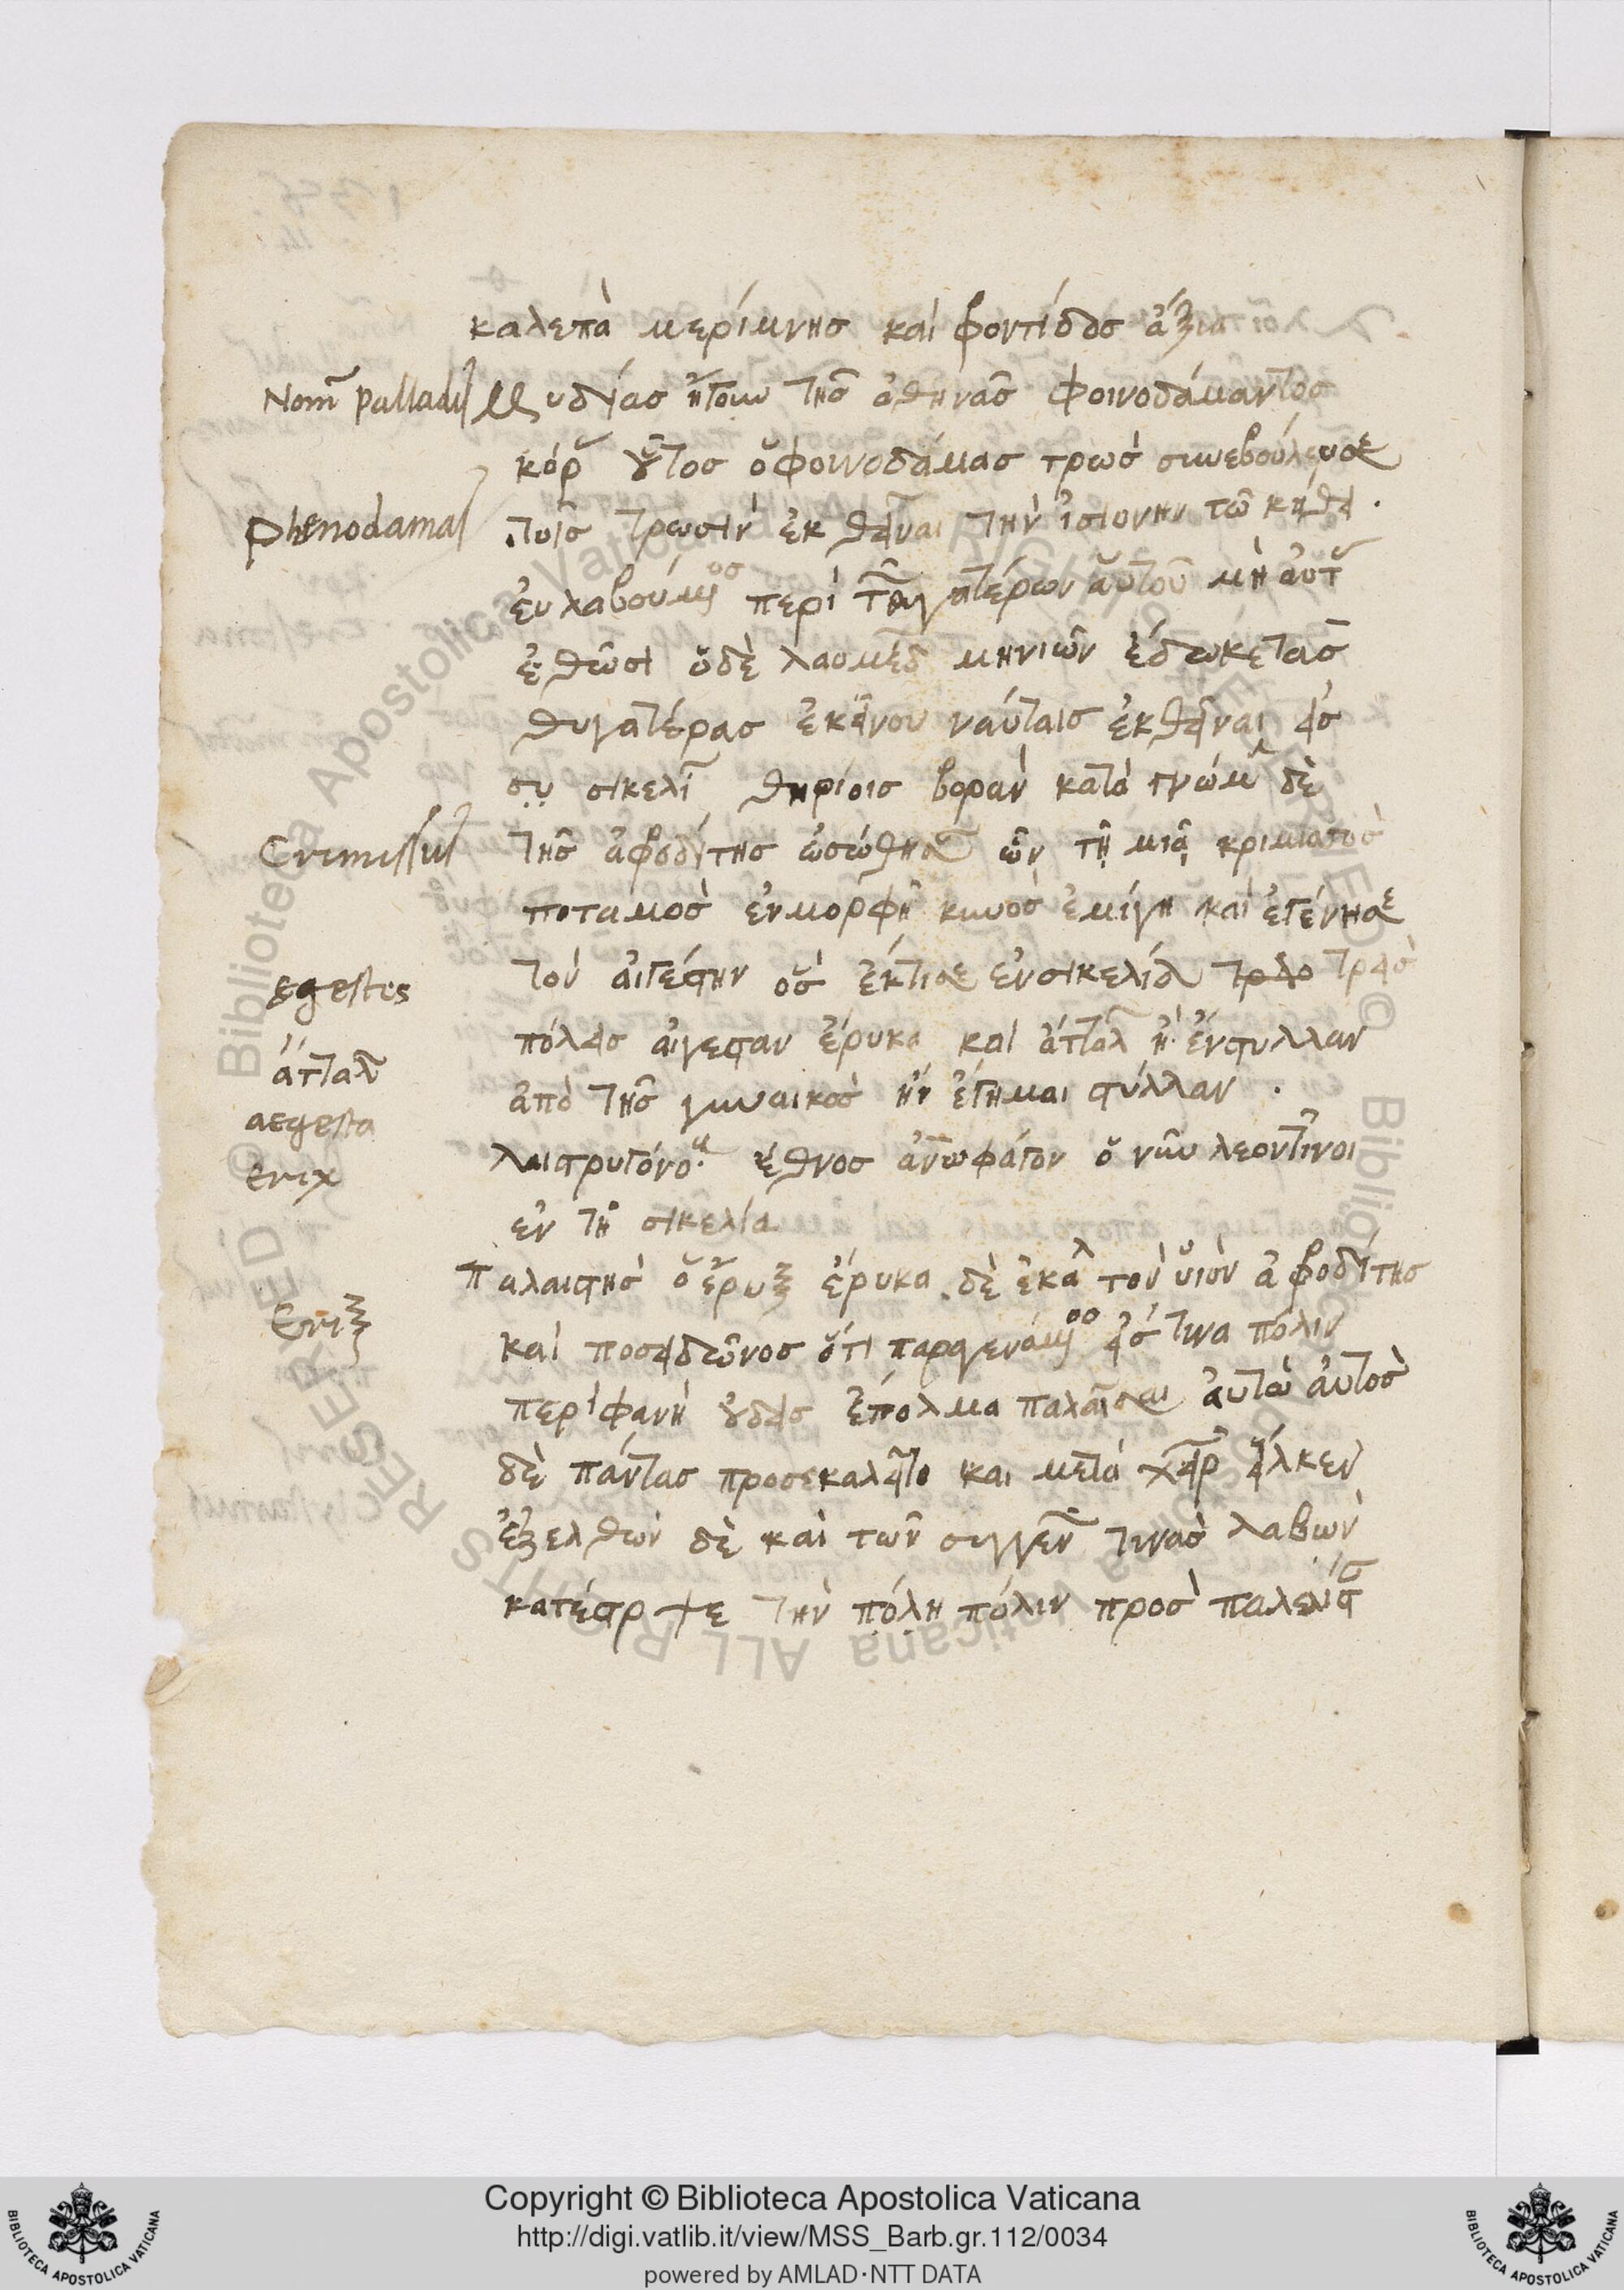 καλεπὰ μερίμνησ καὶ φροντίδοσ ἄξια
Nom̃ palladis Μυδίασ ἤτοιν τῆσ ἀθηνᾶσ φοινοδάμαντοσ
κόρ οὗτοσ ὁ φοινοδάμασ τρωσ συνεβούλευσε
phenodamas τοῖσ τρωσὶν ἐκθεῖναι τὴν ἰσιονην τῶ κήτει.
εὐλαβούμενοσ περὶ τ θυγατέρων αὐτοῦ μὴ αὐτ
ἐκθῶσι ὁ δὲ λαομέδ μηνιῶν ἐδωκε τὰσ
θυγατέρασ ἐκείνου ναύταισ ἐκθεῖναι εἰσ
συ σικελί θηρίοισ βορὰν κατὰ γνώμ δὲ
Crimissus τῆσ ἀφροδίτησ ἐσώθησ ὧν τῇ μιᾷ κριμισσοσ
ποταμὸσ ἐν μορφῆ κυνὸσ ἐμίγη καὶ ἐγέννησε
egestes τὸν αἰγέστην ὃσ ἔκτισε ἐν σικελίᾳ τρεισ
ἄτταλ πόλεισ αἰγεσταν ἔρυκα καὶ ἄτταλ ἢ ἔνστυλλαν
aegesta ἀπὸ τῆσ γυναικὸσ ἣν ἔγημαι στύλλαν .
Erix λαιστρυγόνο. ἔθνοσ ἀνωφάγον ὁ νῦν λεοντῖνοι
ἐν τῆ σικελία
παλαιστησ ὁ ἔρυξ ἔρυκα δὲ ἐκαλ τὸν υἱὸν ἀφροδίτησ
Erix καὶ ποσειδῶνοσ ὅτι παραγενάμενοσ εἴσ τινα πόλιν
περιφανῆ οὐδεισ ἐτόλμα παλαῖσαι αὐτῶ αὐτὸσ
δὲ πάντασ προσεκαλεῖτο και μετὰ χεῖρ εἷλκεν
ἐξελθὼν δὲ καὶ τῶν συγγεν τινὰσ λαβὼν
κατέστρεψε τὴν πόλη πόλιν προσ παλαιστ
Copyright © Biblioteca Apostolica Vaticana
http://digi.vatlib.it/view/MSS_Barb.gr.112/0034
powered by AMLAD·NTT DATA